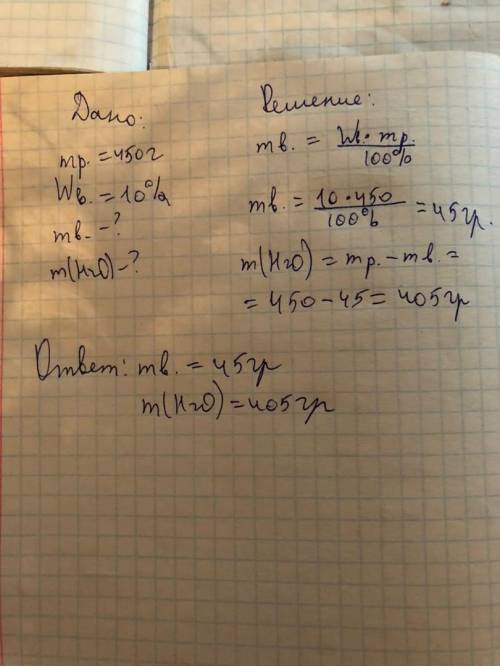 Дано:
mр. = 450г
Wв. = 10%
mв. - ?
m(H2O) - ?
Решение:
mв. = Wв. · mр. / 100%
mв. = 10 · 450 / 100% = 45гр.
m(H2O) = mр. - mв. =
= 450 - 45 = 405гр
Ответ: mв. = 45гр
m(H2O) = 405гр